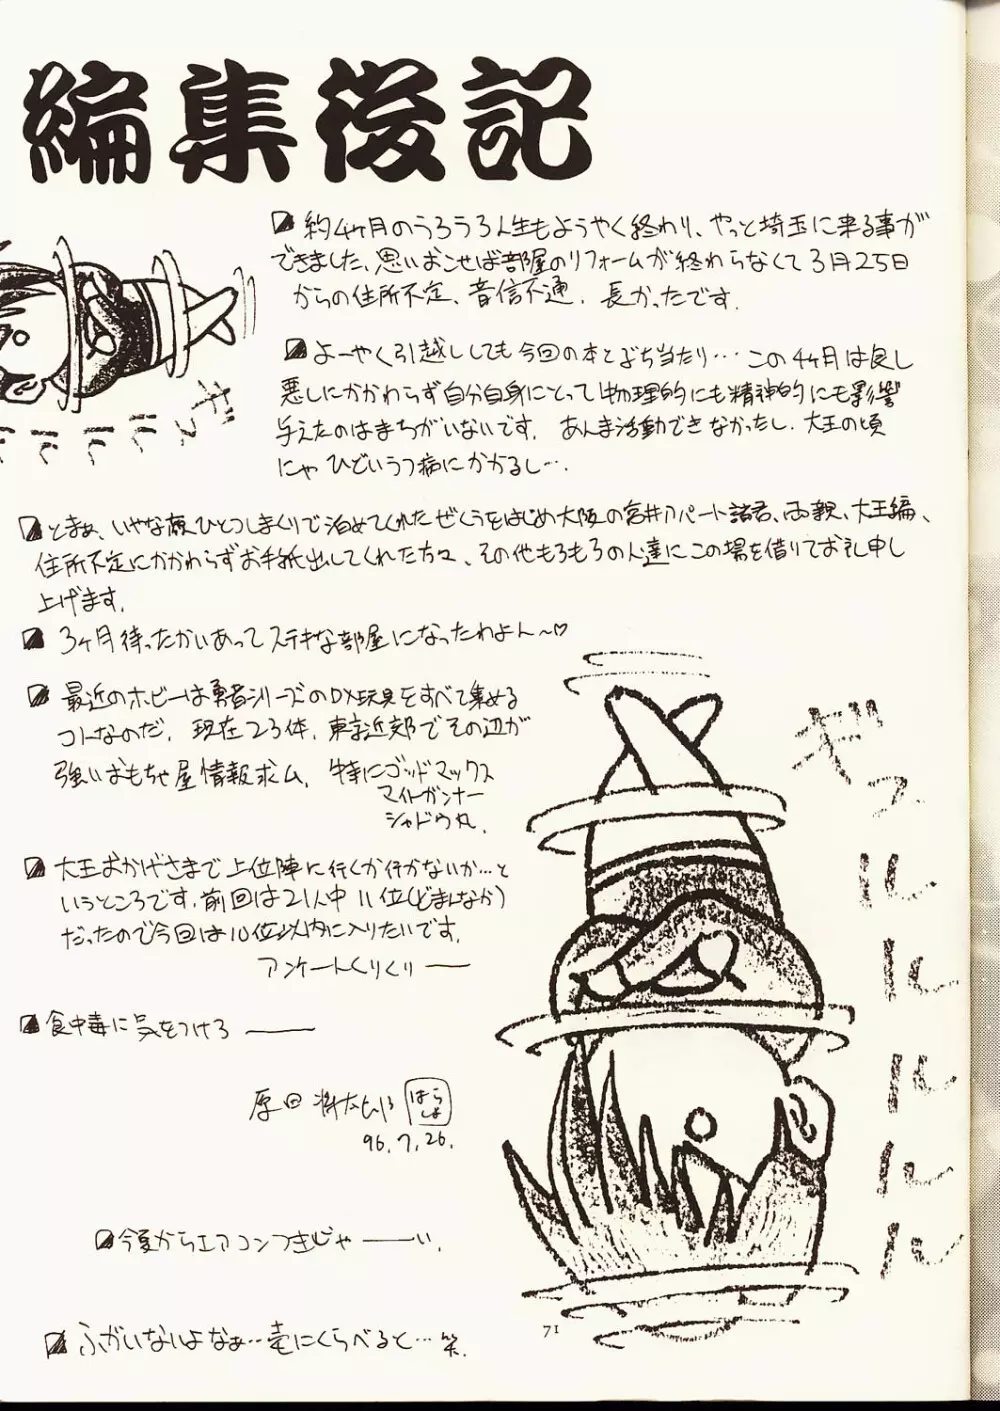 編集後記
約4ヶ月のうろうろ人生もようやく終わり、やっと埼玉に来る事が
できました、思いおこせば部屋のリフォームが終わらなくて3月25日
からの住所不定、音信不通、長かったです.
よーやく引越ししても今回の本とぶち当たり…この4ヶ月は良し
悪しにかかわらず自分自身にとって物理的にも精神的にも影響
与えたのはまちがいないです. あんま活動できなかったし、大王の頃
にゃひどいうつ病にかかるし….
とまぁ、いやな顔ひとつしまくりで泊めてくれたぜくうをはじめ大阪の宮井アパート諸君、両親、大王編、
住所不定にかかわらずお手紙出してくれた方々、その他もろもろの人達にこの場を借りてお礼申し
上げます.
3ヶ月待ったかいあってステキな部屋になったわよん〜♡
最近のホビーは勇者シリーズのDX玩具をすべて集める
コトなのだ. 現在23体. 東京近郊でその辺が
強いおもちゃ屋情報求ム. 特にゴッドマックス
マイトガンナー
シャドウ丸.
大王おかげさまで上位陣に行くか行かないか…と
いうところです.前回は21人中11位(どまんなか)
だったので今回は10位以内に入りたいです.
アンケートくりくりー
食中毒に気をつけろ――
原田将太郎 はらしょ
96.7.26.
今夏からエアコンつきじゃ――い.
ふがいないよなぁ…壱にくらべると…笑.
ギュ
ル
ル
ル
ル
ル
ギュ
71